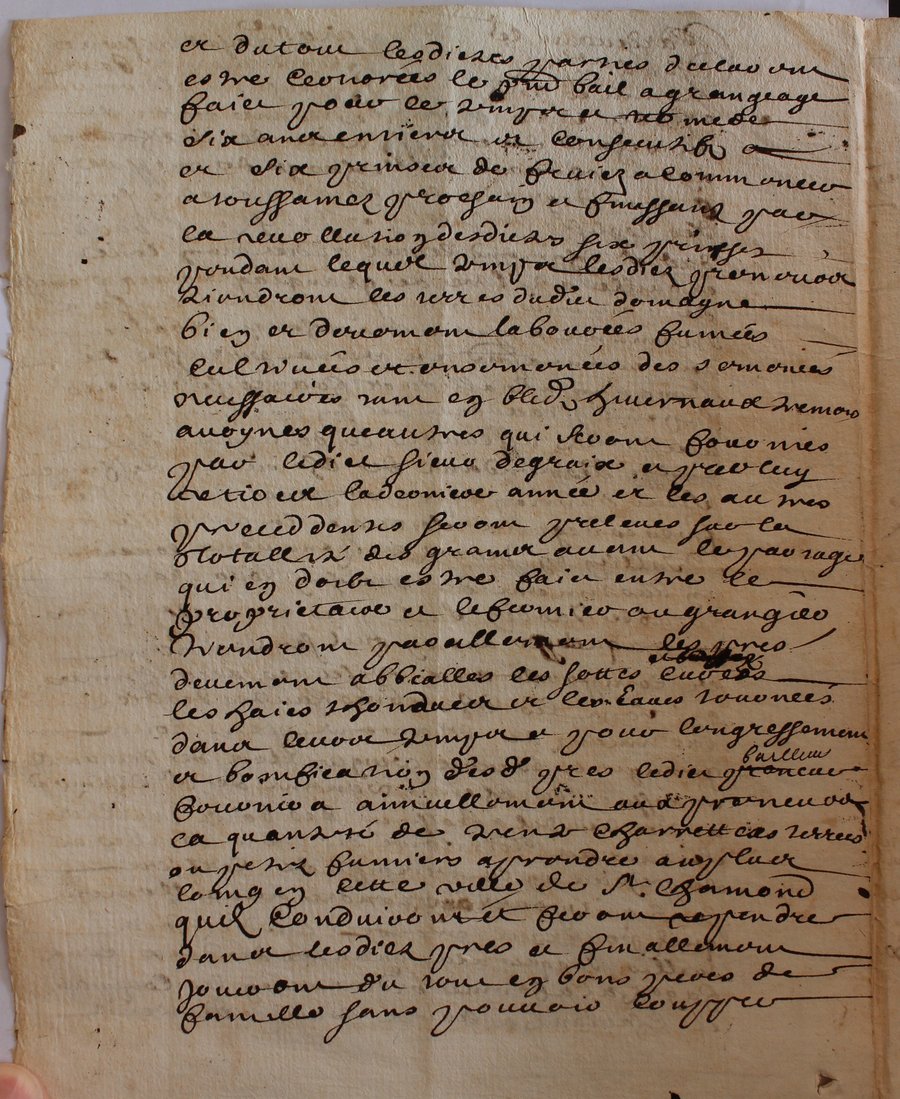 et du tout lesdictes parties declarent
estre leonorées le pnt bail a grangeage
faict pour le temps et terme de
six ans entiers et consecutifz
et six prinses de fruicz a commencer
a toussainctz prochain et finissant par
la revollution desdictes six prinses
pendant lequel temps lesdictz preneurs
tiendront les terres dudict domayne
bien et deuement labourées fumées
cultivées et ensemencées des semences
necessaires tant en bledz hivernaux tremois
avoynes que autres qui seront fournies
par ledict sieur degraix et par luy
retirer la derniere année et les autres
precedentes seront prelevés sur la
totallité des grains avant le partage
qui en doibt estre faict entre le
proprietaire et le fermier ou granger
tiendront parellement les pres
deuement abbialles les sottes curées
les haies thondues et les eaues tournées
dans leurs temps et pour l'engressement
et bonification desdz pres ledict preneur bailleur
fournira annuellement aux preneurs
la quantité de vent charrettées terres
ou petit fumiers a prendre au plus
loing en cette ville de St. Chamond
quilz conduiront et feront rependre
dans lesdictz pres et finallement
jouiront du tout en bons peres de
famille sans pouvoir coupper